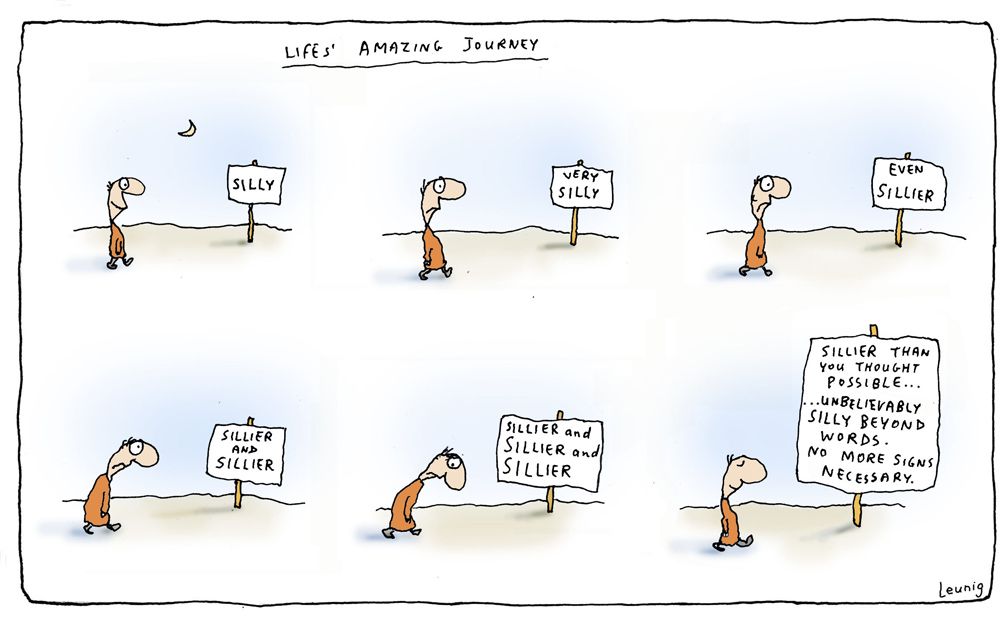 LIFES' AMAZING JOURNEY
SILLY
VERY
SILLY
EVEN
SILLIER
SILLIER
AND
SILLIER
SILLIER and
SILLIER and
SILLIER
SILLIER THAN
YOU THOUGHT
POSSIBLE...
...UNBELIEVABLY
SILLY BEYOND
WORDS.
NO MORE SIGNS
NECESSARY.
Leunig